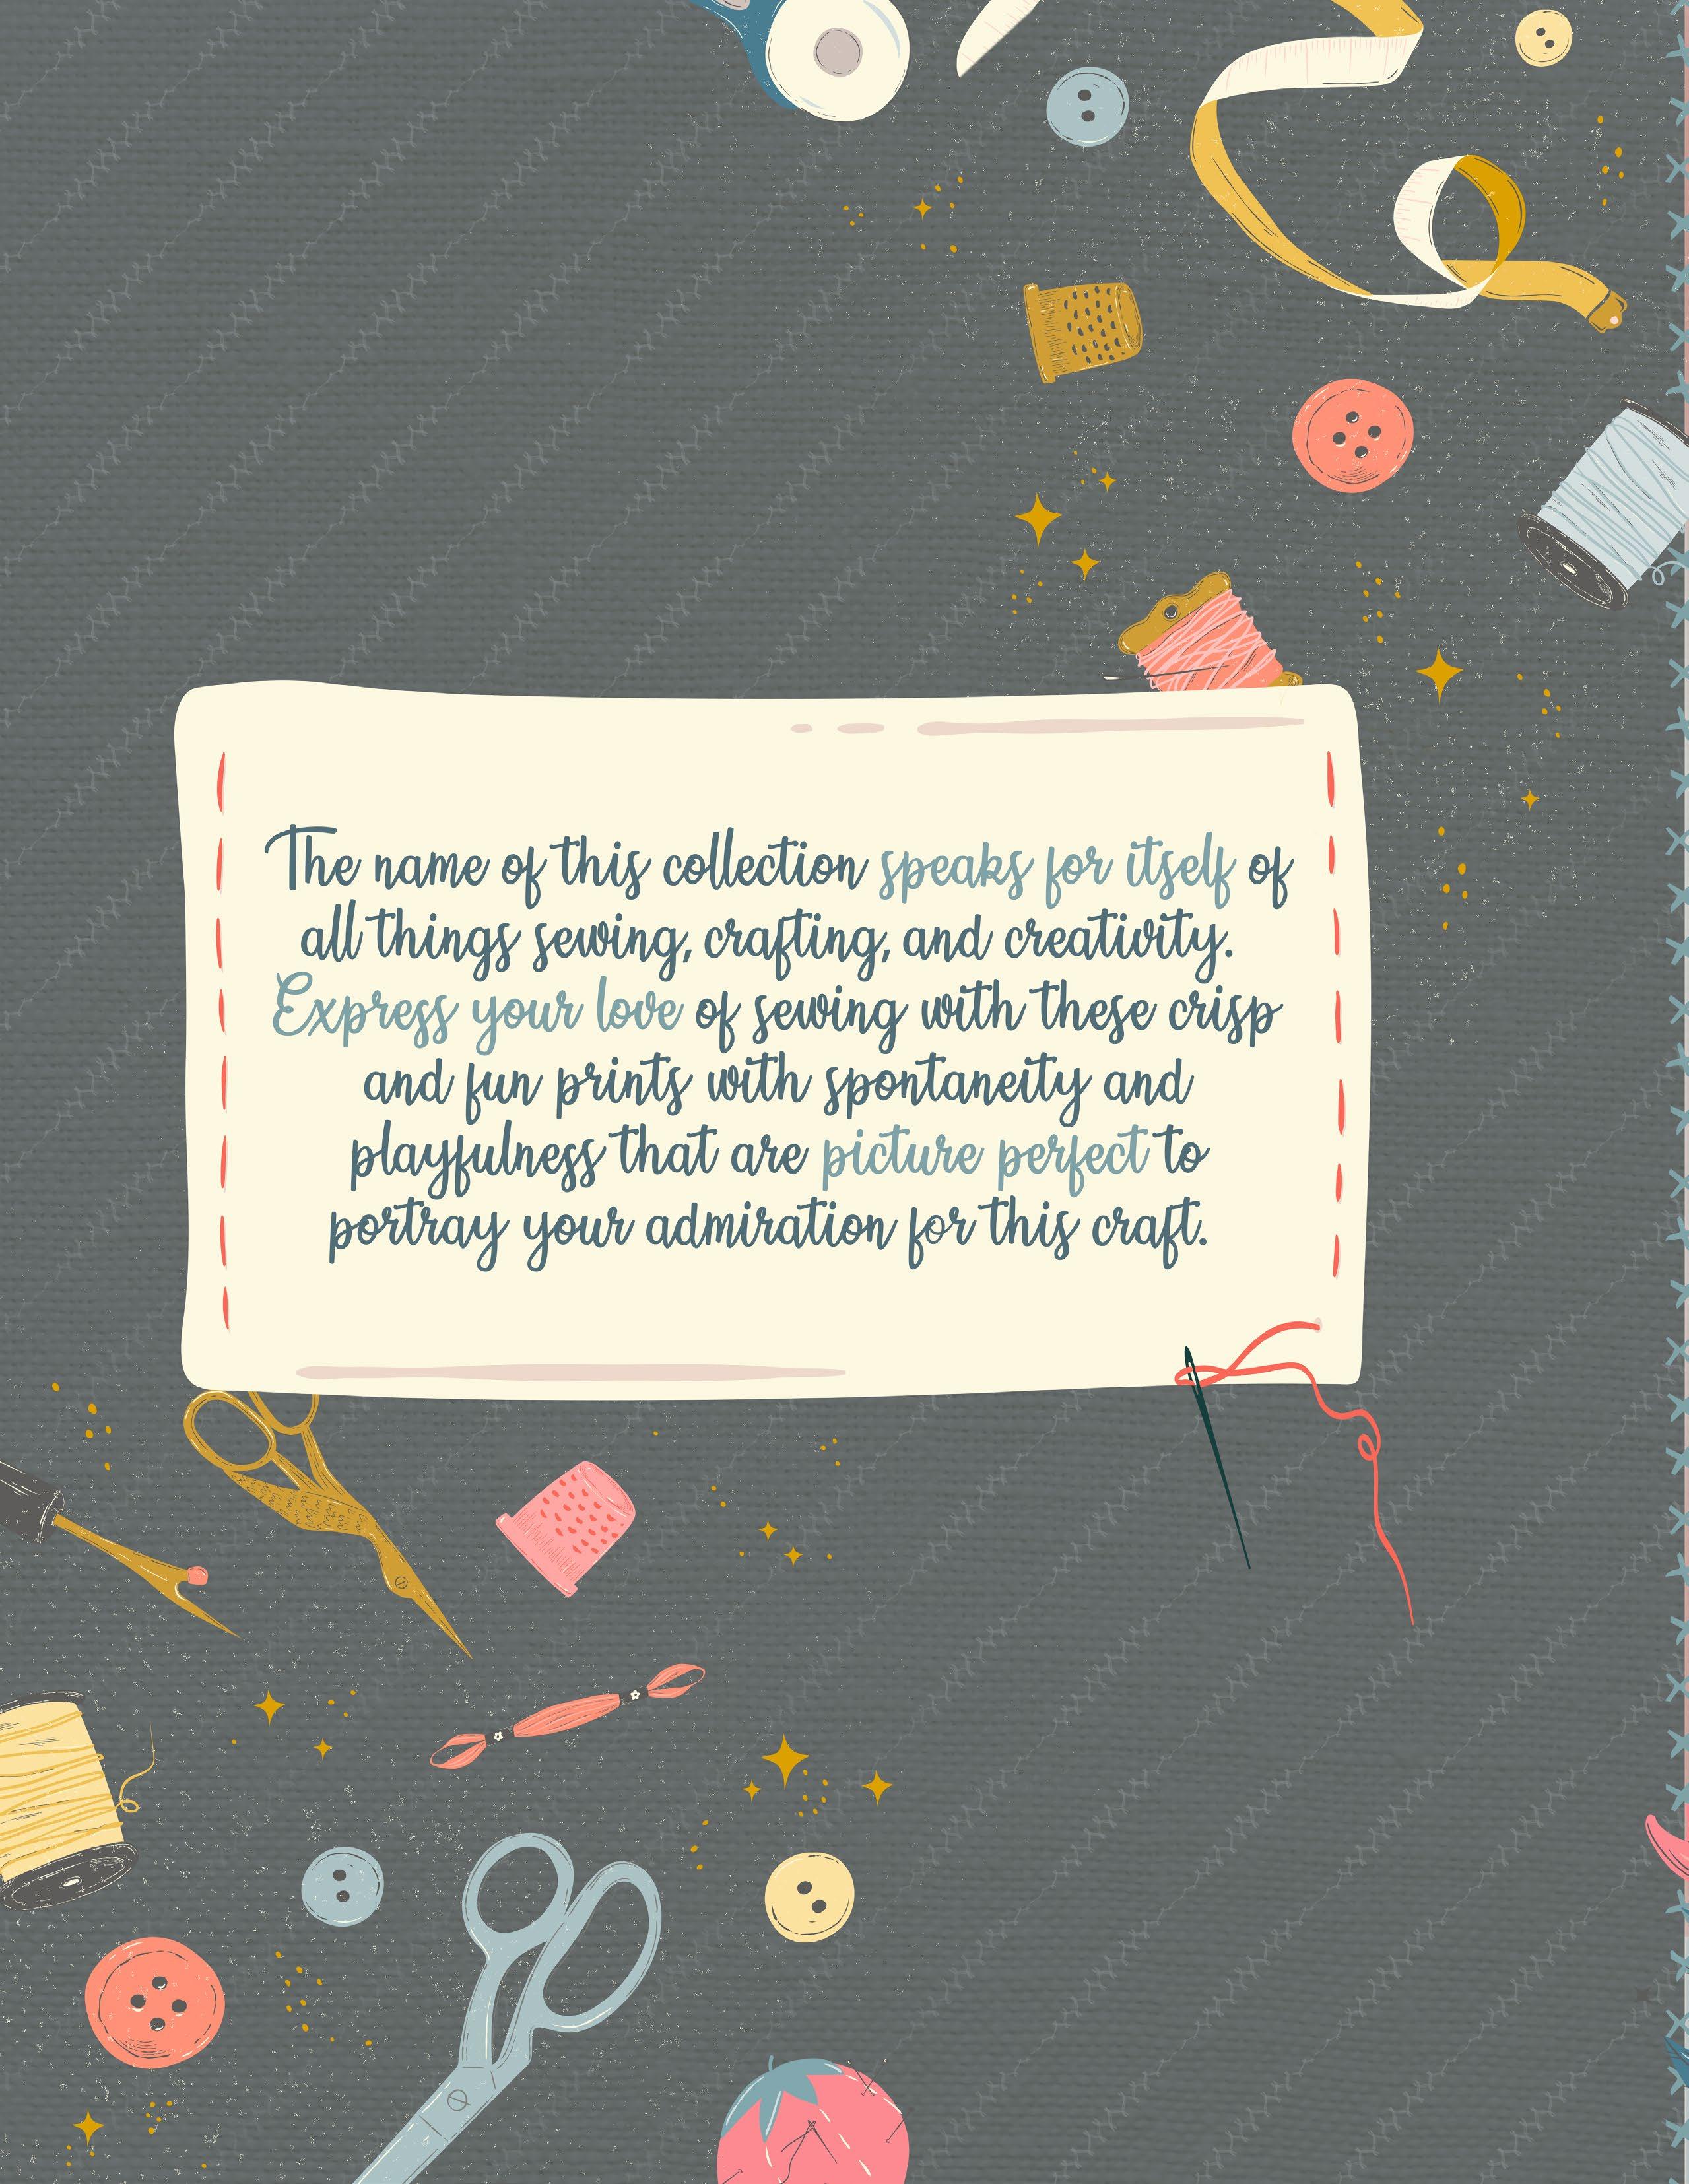 The name of this collection speaks for itself of
all things sewing, crafting, and creativity.
Express your love of sewing with these crisp
and fun prints with spontaneity and
playfulness that are picture perfect to
portray your admiration for this craft.